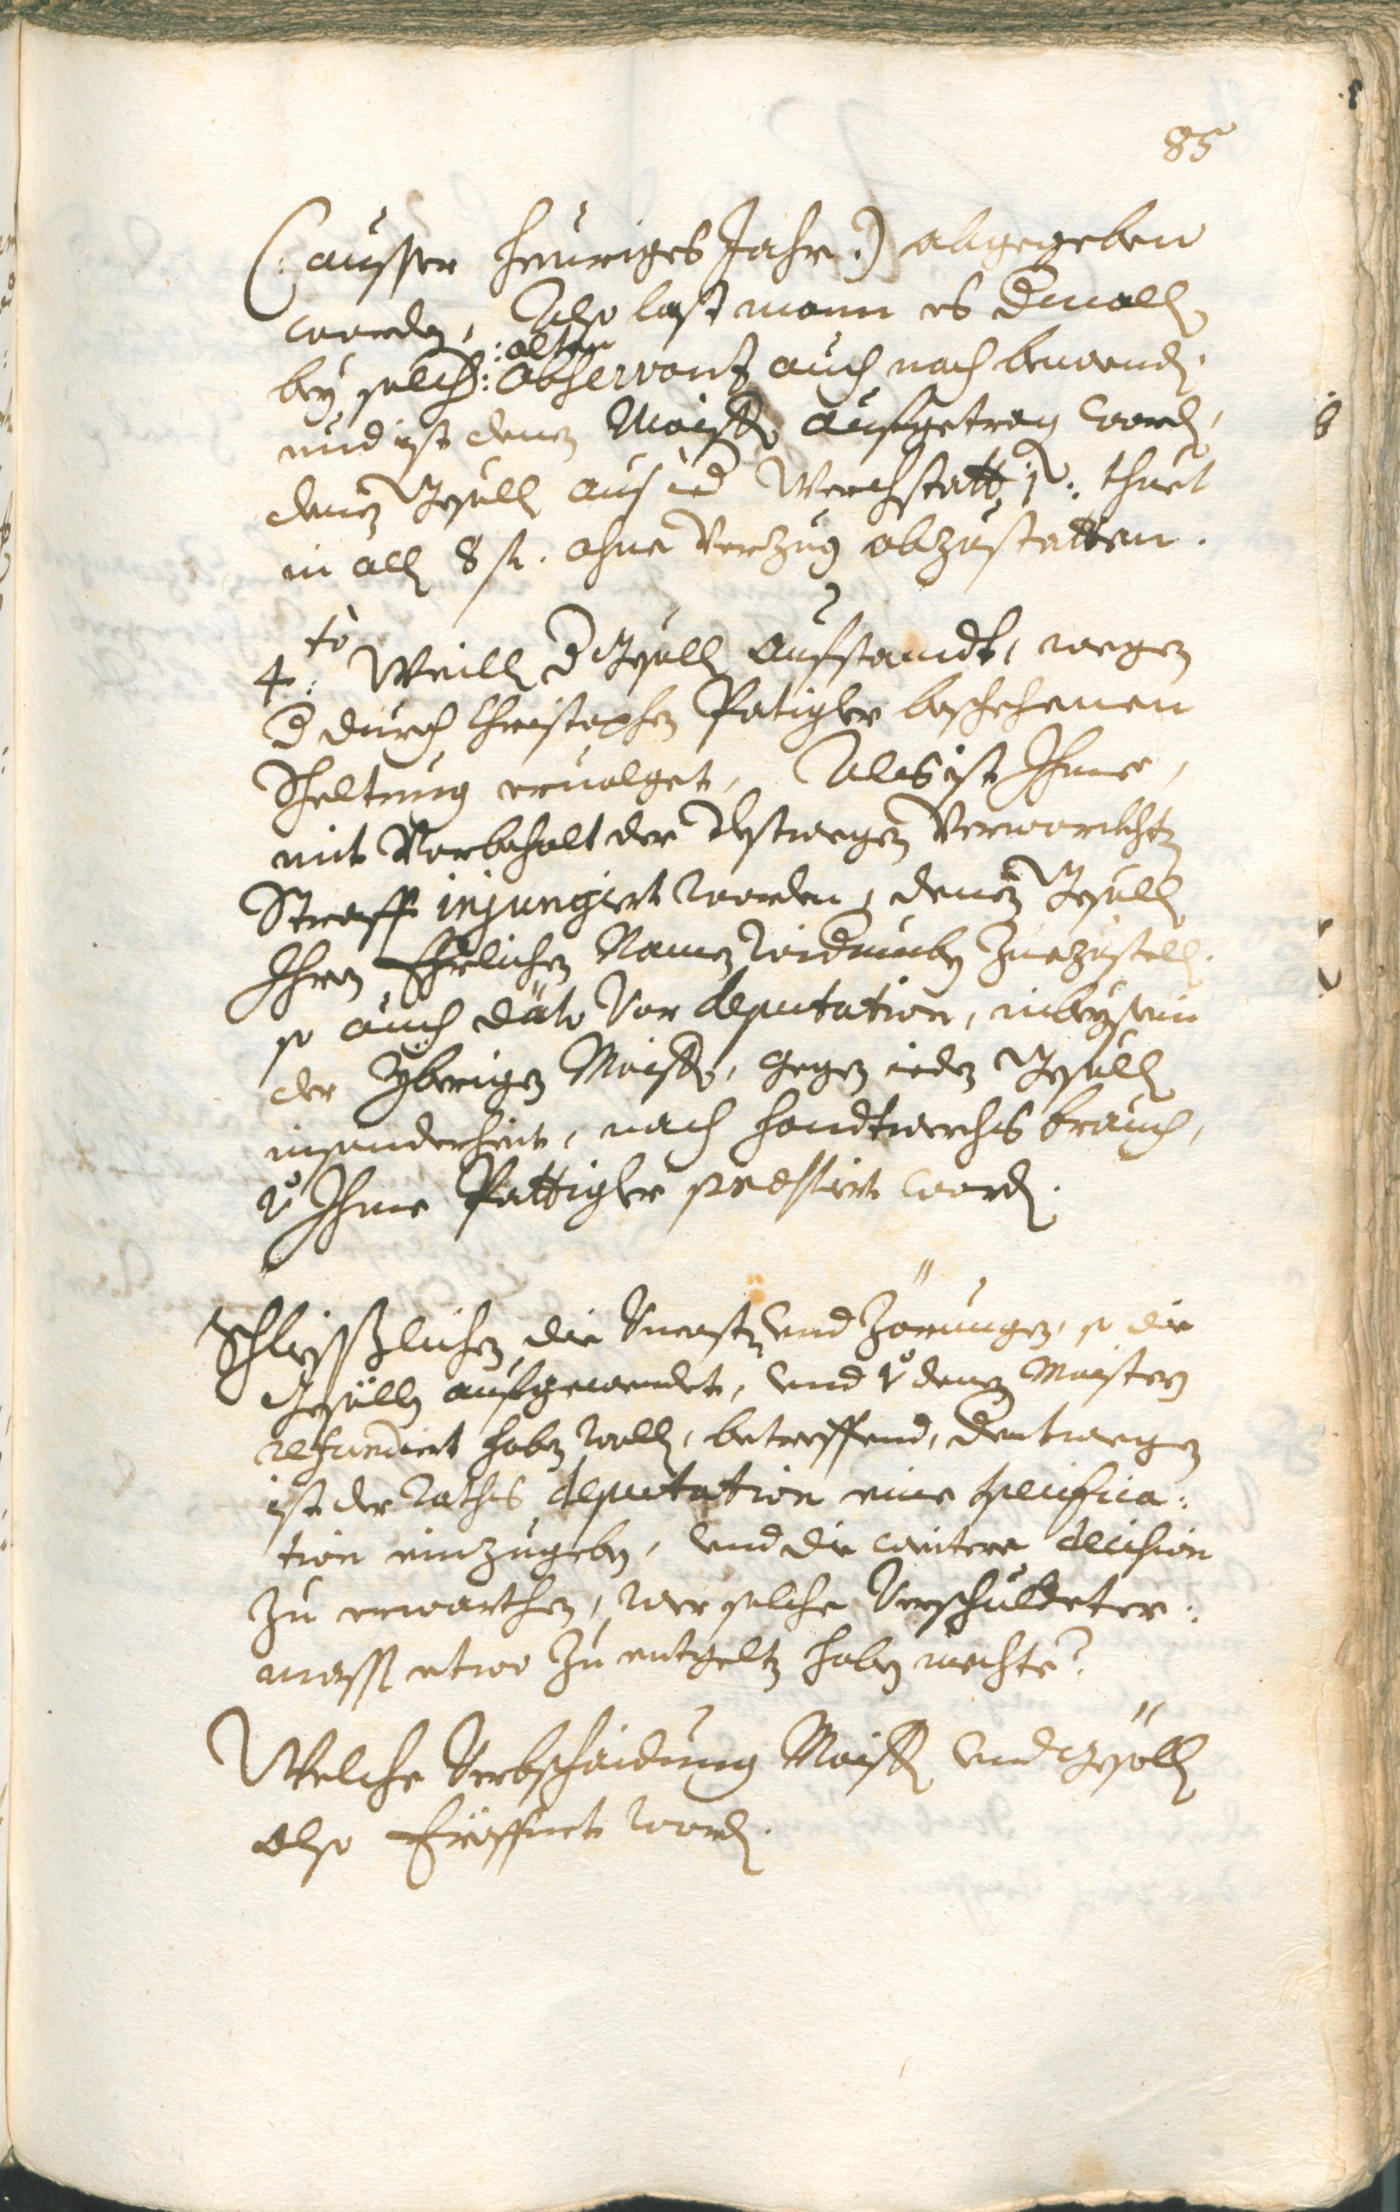 85
(: ausser heuriges Jahr :) abgegeben
worden, Also last mann es dmall
:alten
bey solch: observanz auch noch bewend,
und ist denen Maistr aufgetragen word,
denen Gesell auf ied Werchstatt 1 f: thuet
in all 8 fl. ohne Verzug abzustatten.
4.to Weill d Gesell Aufstandt, wegen
d durch Christophen Patigler beschehenen
Scheltung ervolget, Als ist Ihme,
mit Vorbehalt der destwegen Verworchten
Straff injungiert worden, denen Gesell
Ihren Ehrlichen Namen widrumben zuezustell,
so auch dato vor deputation, in beysein
der yberigen Maistr, gegen ieden Gesell
insonderheit, nach handtwerchs brauch,
v Ihme Pattigler prestirt word.
Schließlichen die Vncosten und Zörungen, so die
Gesellen aufgewendet, und v denen Maistern
refundiert haben woll, betreffend, dentwegen
ist der Raths deputation eine specifica:
tion einzugeben, und die weitere decision
zu erwarthen, wer solche Verschuldeter:
mass etwo zu entgelten haben mechte?
Welche Verbschaidung Maistr und Gesöll
also Eröffnet word.